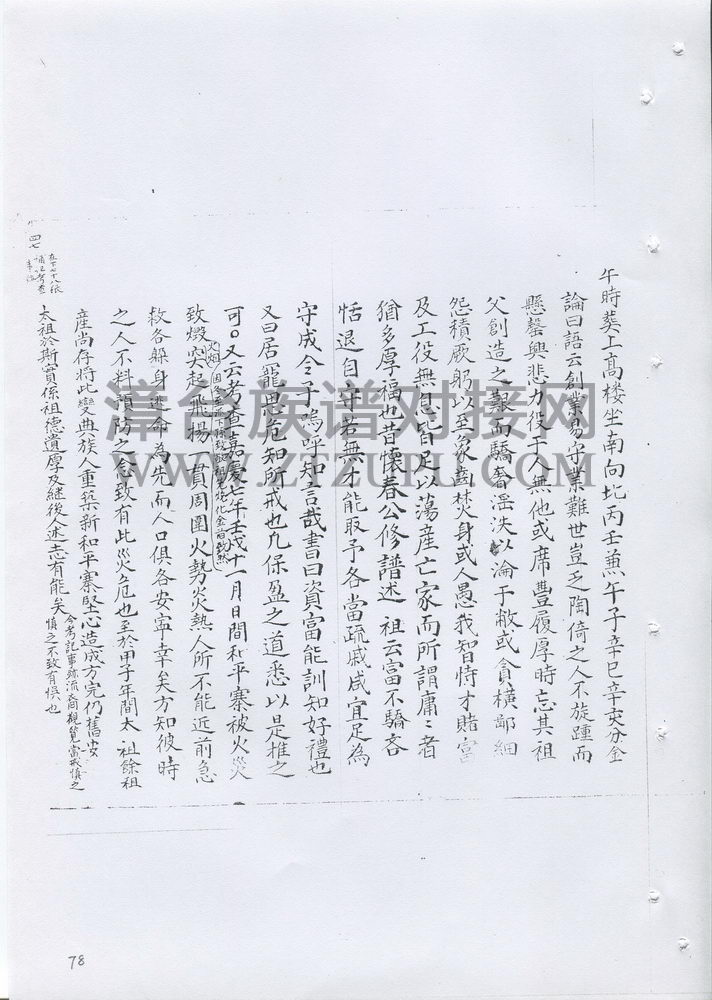 午時葬上高楼坐南向北丙壬兼午子辛巳辛亥分金
論曰語云創業易守業難世豈乏陶倚之人不旋踵而
懸罄興悲力役于人無他或席豊履厚時忘其祖
父創造之艱而驕奢淫泆以淪于敝或貪橫鄙細
怨積厥躬以至象齒焚身或人愚我智恃才賭富
及工役無息皆足以蕩産亡家而所謂庸〻者
猶多厚福也昔懷春公修譜述祖云富不驕吝
恬退自守若無才能取予各當疏戚咸宜足為
守成令子嗚呼知言哉書曰資富能訓知好禮也
又曰居寵思危知所戒也凢保盈之道悉以是推之
可。又云考查嘉慶七年壬戌十一月日間和平寨被火災
致燬突起飛揚一貫周圍火勢炎熱人所不能近前急
救各躲身逃命為先而人口俱各安寧幸矣方知彼時
之人不料預防之念致有此災危也至於甲子年間太祖餘祖
產尚存將此變典族人重築新和平寨堅心造成方完仍舊安
太祖於斯實係祖德遺厚及継後人述志有能矣 慎之不致有悞也
今考記事跡流裔觀覽當戒慎之
四七
漳台族谱对接网
WWW.ZTZUPU.COM
78